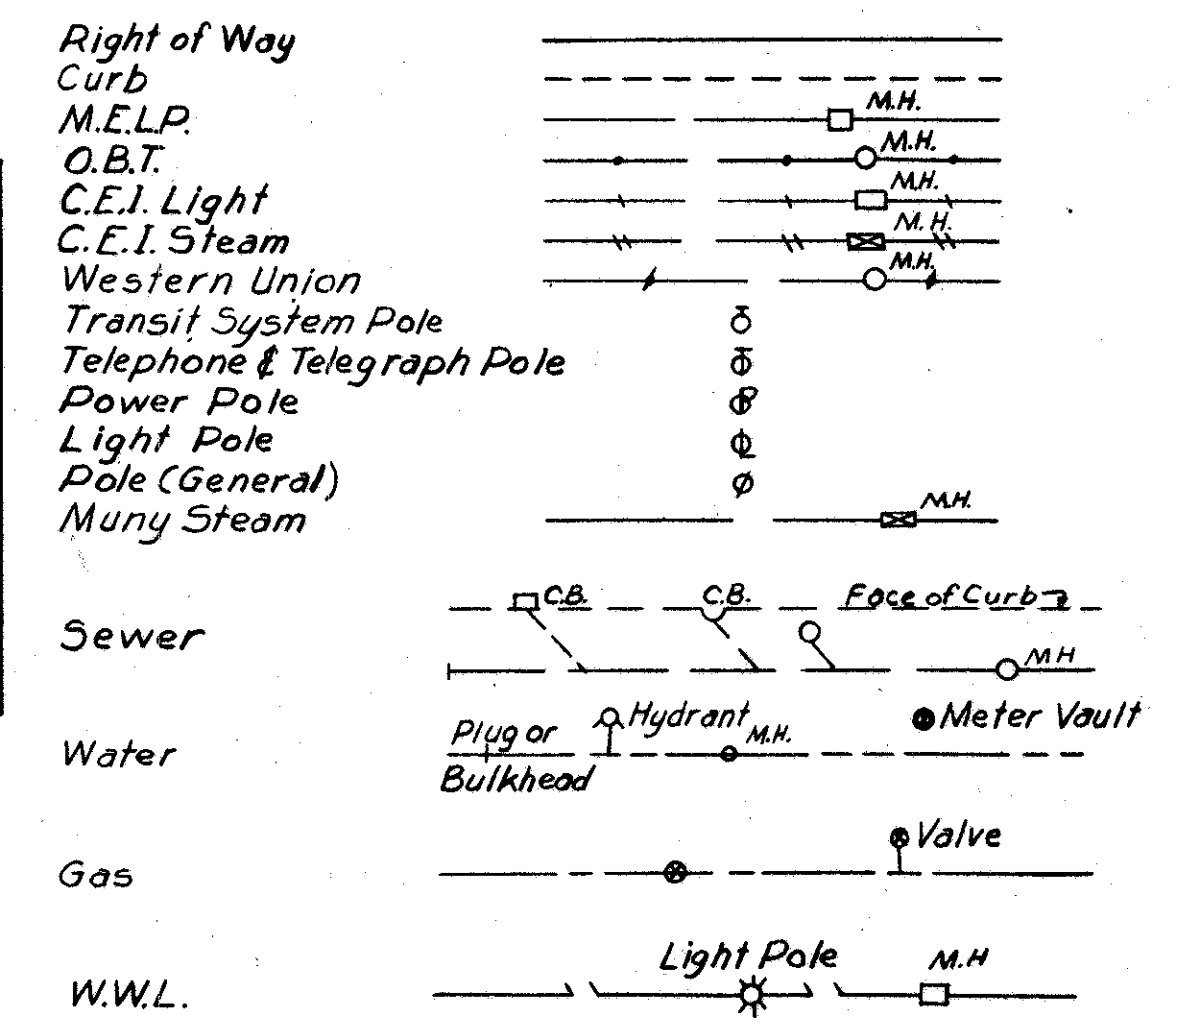 Right of Way
Curb
M.E.L.P. M.H.
O.B.T. M.H.
C.E.I. Light M.H.
C.E.I. Steam M.H.
Western Union M.H.
Transit System Pole
Telephone & Telegraph Pole
Power Pole
Light Pole
Pole (General)
Muny Steam M.H.
C.B. C.B. Face of Curb
Sewer M H
Plug or Hydrant M.H. Meter Vault
Water
Bulkhead
Valve
Gas
Light Pole M.H
W.W.L.